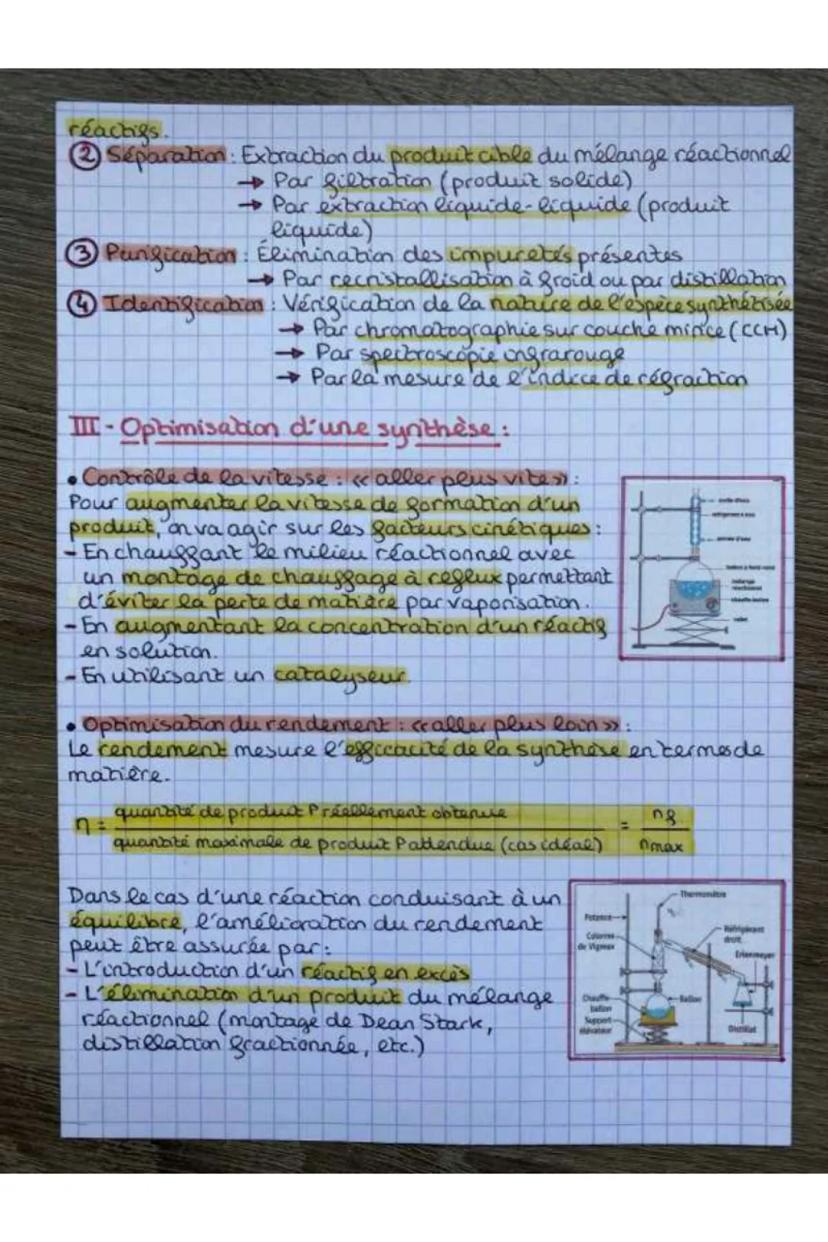 réactifs.
② Séparation : Extraction du produit cible du mélange réactionnel
→ Par filtration (produit solide)
→ Par extraction liquide-liquide (produit
liquide)
③ Purification : Élimination des impuretés présentes
→ Par recristallisation à froid ou par distillation
④ Identification : Vérification de la nature de l'espèce synthétisée
→ Par chromatographie sur couche mince (CCM)
→ Par spectroscopie infrarouge
→ Par la mesure de l'indice de réfraction
III - Optimisation d'une synthèse :
• Contrôle de la vitesse : « aller plus vite » :
Pour augmenter la vitesse de formation d'un
produit, on va agir sur les facteurs cinétiques :
- En chauffant le milieu réactionnel avec
un montage de chauffage à reflux permettant
d'éviter la perte de matière par vaporisation.
- En augmentant la concentration d'un réactif
en solution.
- En utilisant un catalyseur.
sortie d'eau
réfrigérant à eau
arrivée d'eau
ballon à fond rond
mélange
réactionnel
chauffe-ballon
• Optimisation du rendement : « aller plus loin » :
Le rendement mesure l'efficacité de la synthèse en termes de
matière.
η = quantité de produit P réellement obtenue / quantité maximale de produit P attendue (cas idéal) = nf / nmax
Dans le cas d'une réaction conduisant à un
équilibre, l'amélioration du rendement
peut être assurée par :
- L'introduction d'un réactif en excès
- L'élimination d'un produit du mélange
réactionnel (montage de Dean Stark,
distillation fractionnée, etc.)
Thermomètre
Potence
Colonne
de Vigreux
Réfrigérant
droit
Erlenmeyer
Chauffe-
ballon
Ballon
Support
élévateur
Distillat